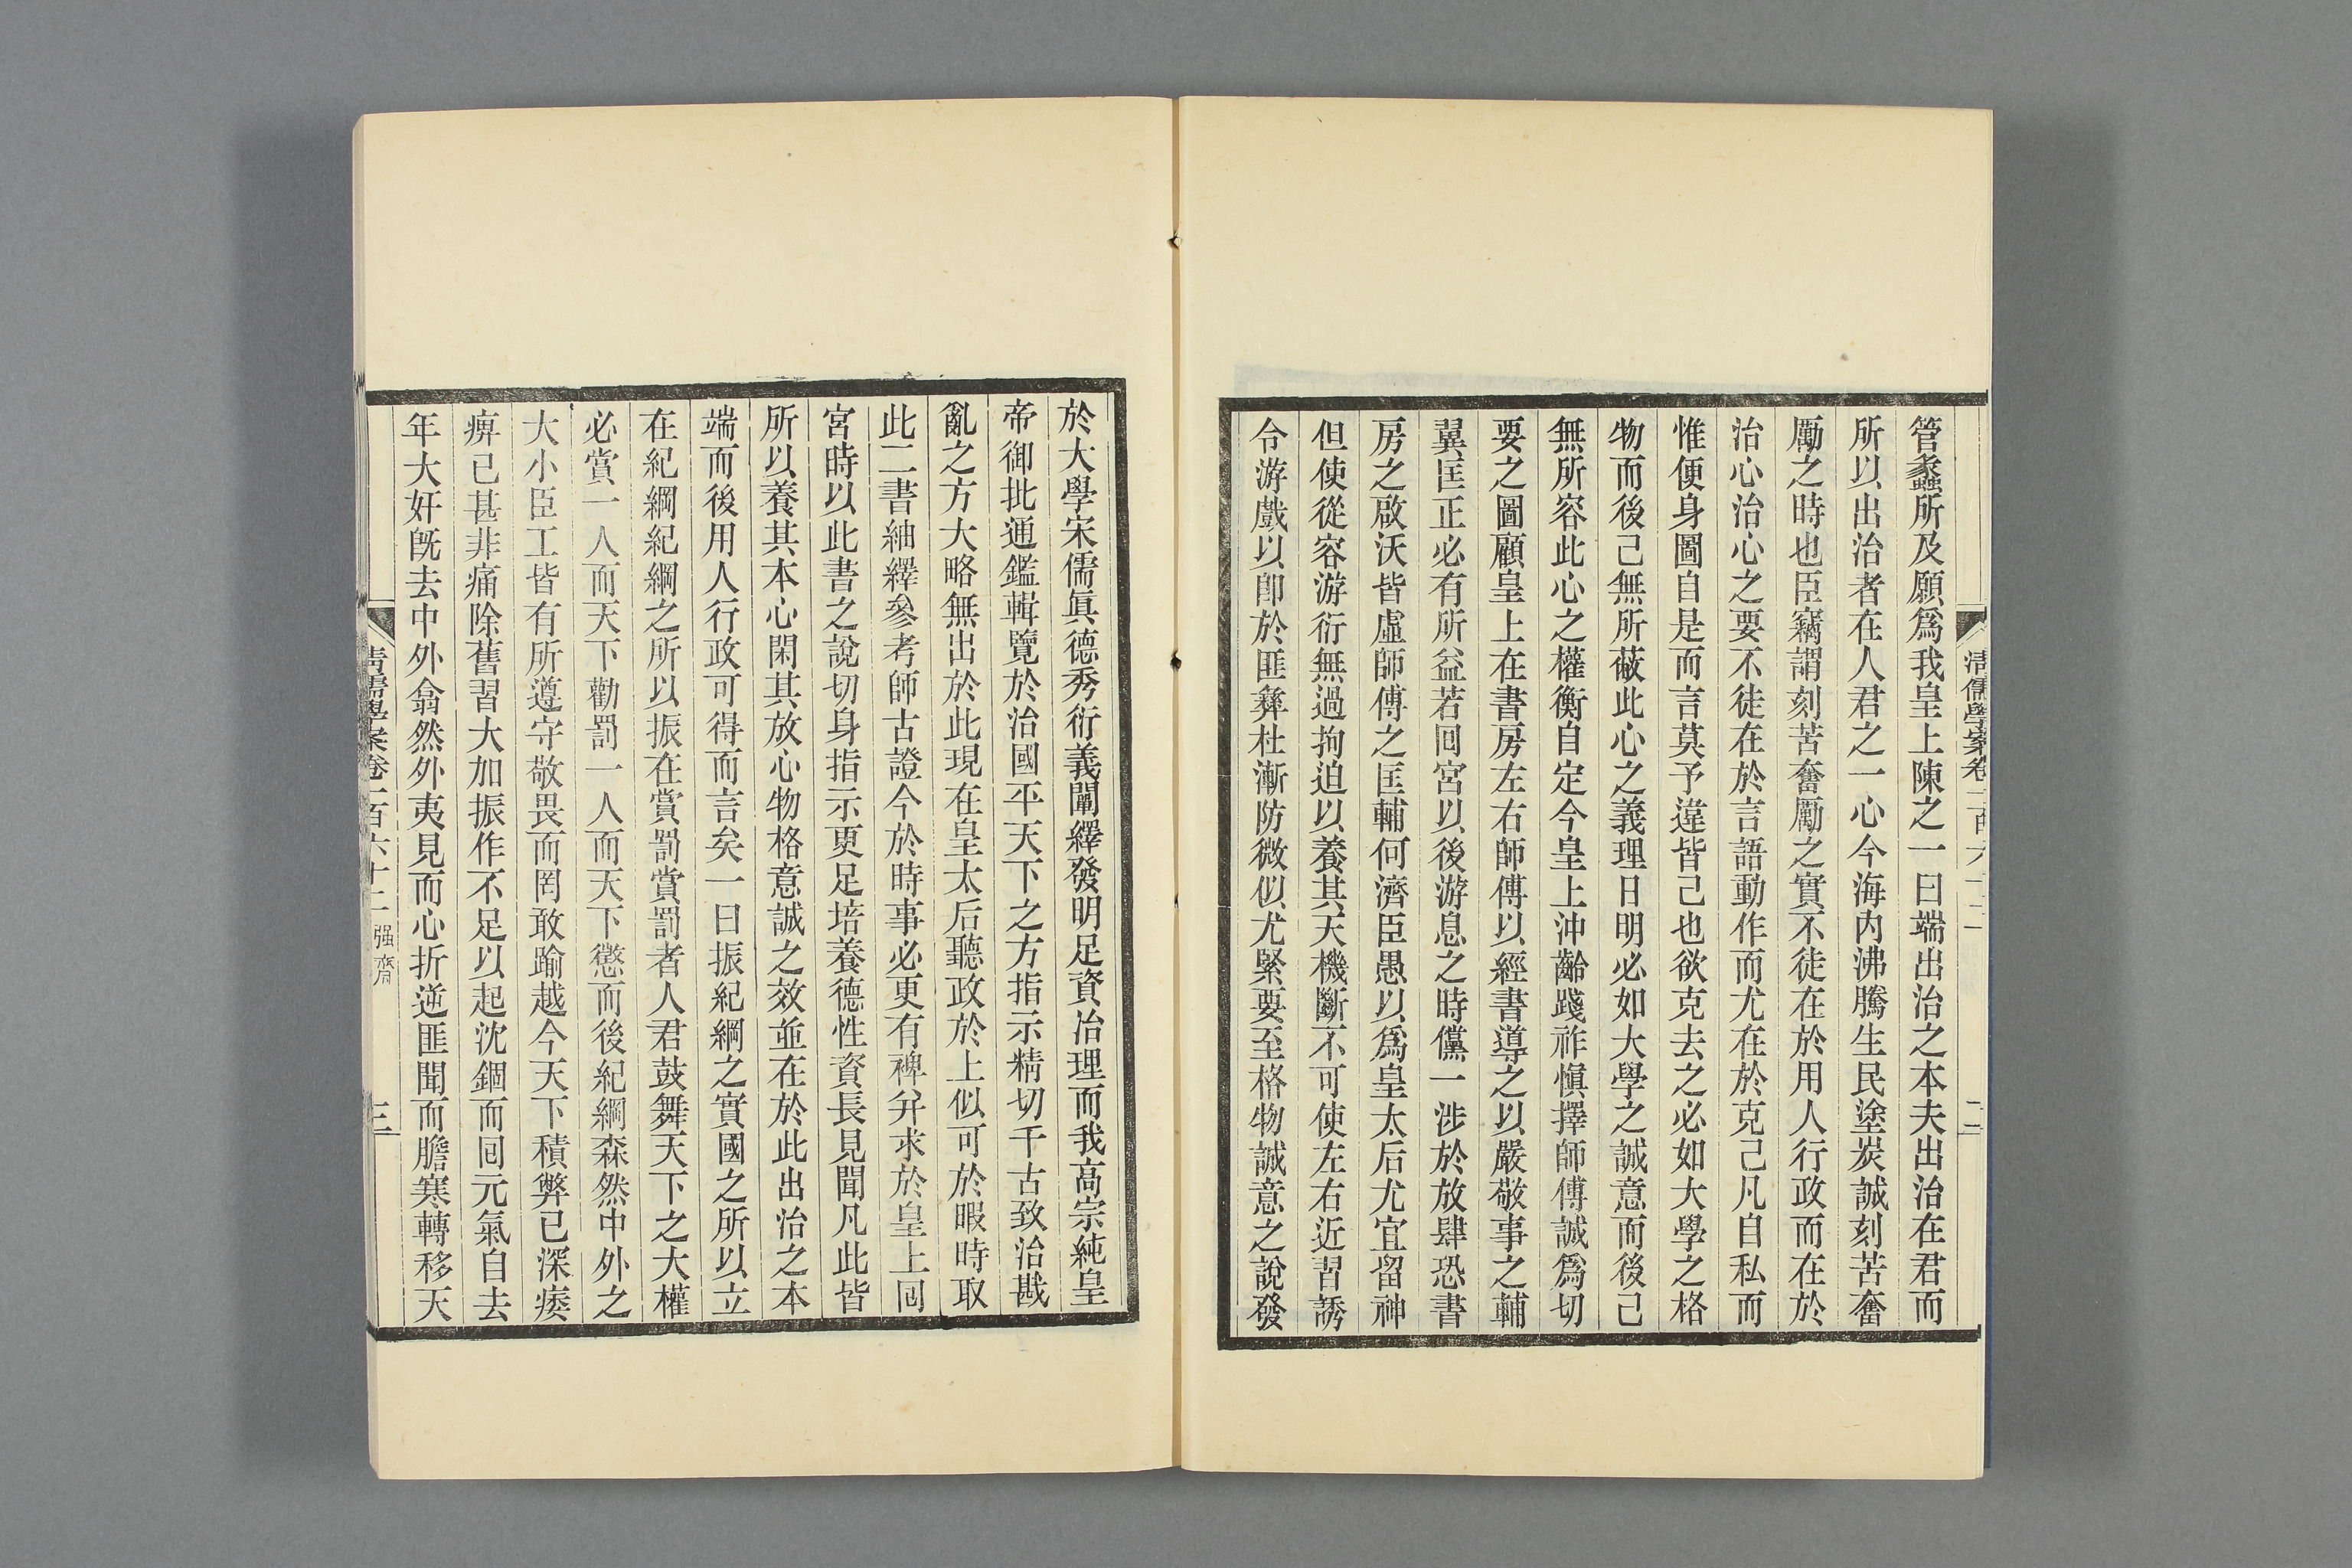 管蠡所及願爲我皇上陳之一曰端出治之本夫出治在君而
所以出治者在人君之一心今海內沸騰生民塗炭誠刻苦奮
勵之時也臣竊謂刻苦奮勵之實不徒在於用人行政而在於
治心治心之要不徒在於言語動作而尤在於克己凡自私而
惟便身圖自是而言莫予違皆己也欲克去之必如大學之格
物而後己無所蔽此心之義理日明必如大學之誠意而後己
無所容此心之權衡自定今皇上沖齡踐祚愼擇師傅誠爲切
要之圖顧皇上在書房左右師傅以經書導之以嚴敬事之輔
翼匡正必有所益若回宮以後游息之時儻一涉於放肆恐書
房之啟沃皆虛師傅之匡輔何濟臣愚以爲皇太后尤宜畱神
但使從容游衍無過拘迫以養其天機斷不可使左右近習誘
令游戲以卽於匪彝杜漸防微似尤緊要至格物誠意之說發
清儒學案卷一百六十二
二
於大學宋儒眞德秀衍義闡繹發明足資治理而我高宗純皇
帝御批通鑑輯覽於治國平天下之方指示精切千古致治戡
亂之方大略無出於此現在皇太后聽政於上似可於暇時取
此二書紬繹參考師古證今於時事必更有裨弁求於皇上回
宮時以此書之說切身指示更足培養德性資長見聞凡此皆
所以養其本心閑其放心物格意誠之效並在於此出治之本
端而後用人行政可得而言矣一曰振紀綱之實國之所以立
在紀綱紀綱之所以振在賞罰賞罰者人君鼓舞天下之大權
必賞一人而天下勸罰一人而天下懲而後紀綱森然中外之
大小臣工皆有所遵守敬畏而罔敢踰越今天下積弊已深痿
痹已甚非痛除舊習大加振作不足以起沈錮而囘元氣自去
年大奸旣去中外翕然外夷見而心折逆匪聞而膽寒轉移天
清儒學案卷一百六十二 强齋
三